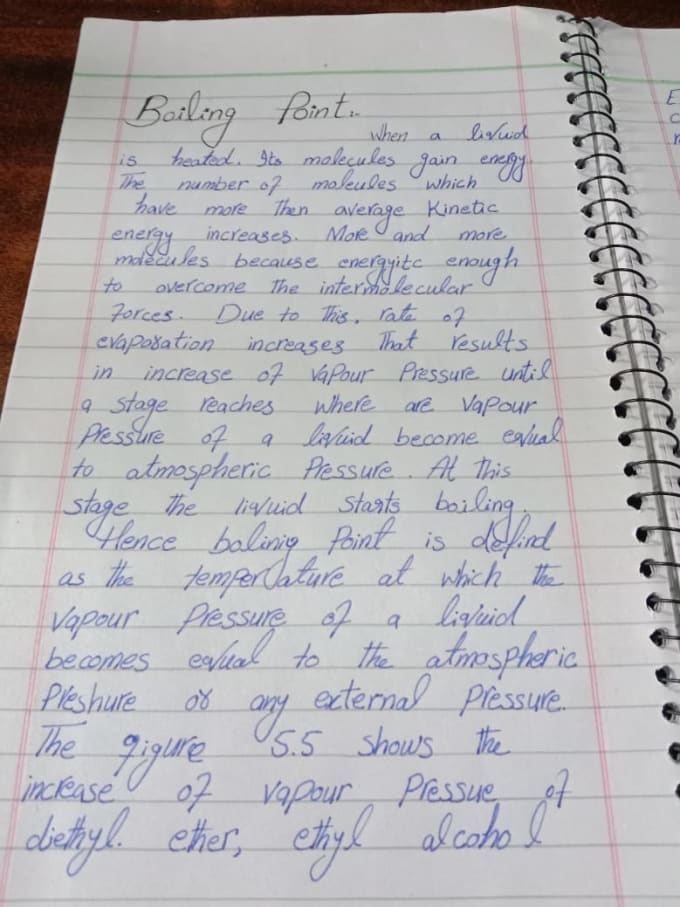 Boiling Point:-
When a liquid
is heated. Its molecules gain energy.
The number of molcules which
have more Then average Kinetic
energy increases. More and more
molecules because energyitc enough
to overcome The intermolecular
Forces. Due to This, rate of
evaporation increases That results
in increase of Vapour Pressure until
a stage reaches where are Vapour
Pressure of a liquid become equal
to atmospheric Pressure. At This
stage The liquid Starts boiling.
Hence bolinig Point is defind
as the temperature at which The
Vapour Pressure of a liquid
becomes equal to the atmospheric
Preshure or any external Pressure.
The figure 5.5 shows the
increase of vapour Pressue of
diethyl. ether, ethyl alcohol
E